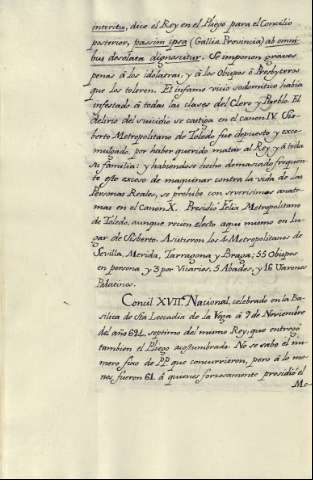 interitu, dice el Rey en el Pliego para el Concilio
posterior, passim ipsa (Gallia Provincia) ab omni-
bus desolata dignoscatur. Se imponen graves
penas à los idolatras, y à los Obispos ò Presbyteros
que los toleren. El infame vicio sodomitico habia
infestado à todas las clases del Clero y Pueblo. El
delirio del suicidio se castiga en el canon IV. Sis-
berto Metropolitano de Toledo fue depuesto y exco-
mulgado por haber querido matar al Rey y à toda
su familia: y habiendose hecho demasiado frequen-
te este exceso de maquinar contra la vida de las
Personas Reales, se prohibe con severisimos anate-
mas en el Canon X. Presidio Felix Metropolitano
de Toledo, aunque recien electo aqui mismo en lu-
gar de Sisberto. Asistieron los Metropolitanos de
Sevilla, Merida, Tarragona y Braga; 55 Obispos
en persona y 3 por Vicarios, 5 Abades, y 16 Varones
Palatinos.
Concil XVII.º Nacional, celebrado en la Ba-
silica de Sta Leocadia de la Vega à 9 de Noviembre
del año 694, septimo del mismo Rey, que entregó
tambien el Pliego acostumbrado. No se sabe el nu-
mero fixo de PP. que concurrieron, pero à lo me-
nos fueron 61 à quienes forzosamente presidió el
Me-